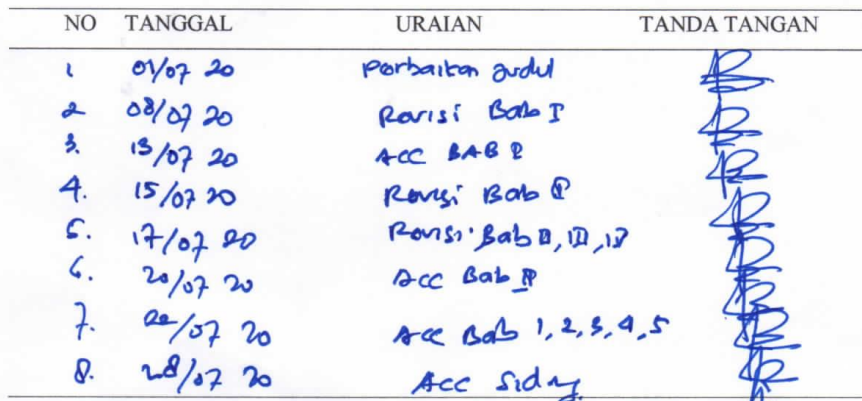 NO TANGGAL URAIAN TANDA TANGAN
1 01/07 20 Perbaikan Judul
2 08/07 20 Revisi Bab I
3. 13/07 20 ACC BAB
4. 15/07 20 Revisi Bab
5. 17/07 20 Revisi Bab II, III, IV
6. 20/07 20 Acc Bab
7. 22/07 20 Acc Bab 1, 2, 3, 4, 5
8. 28/07 20 Acc Sidang